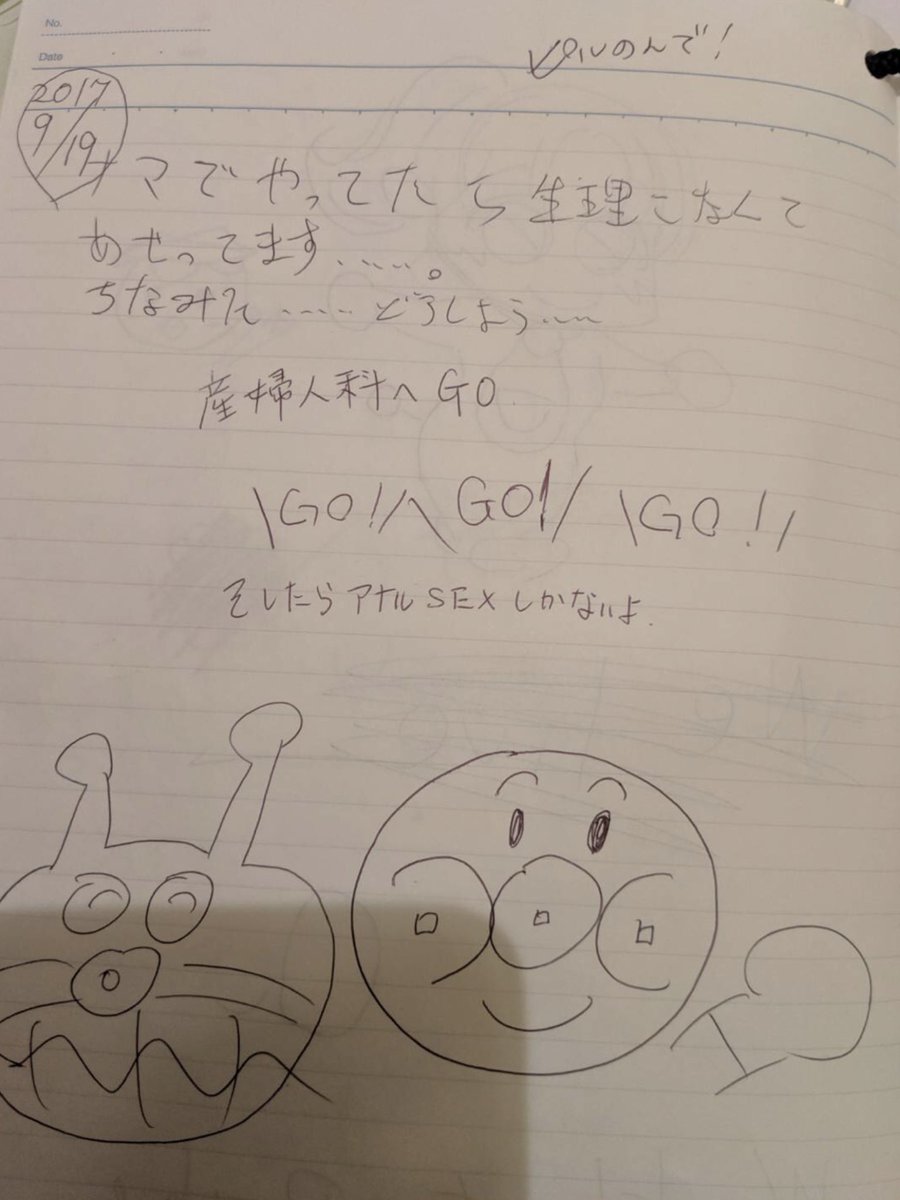 No.
ピルのんで!
Date
2017
9/19
ナマでやってたら生理こなくて
あせってます……。
ちなみに……どうしよう……
産婦人科へGO
\GO!/\GO!/\GO!/
そしたらアナルSEXしかないよ.